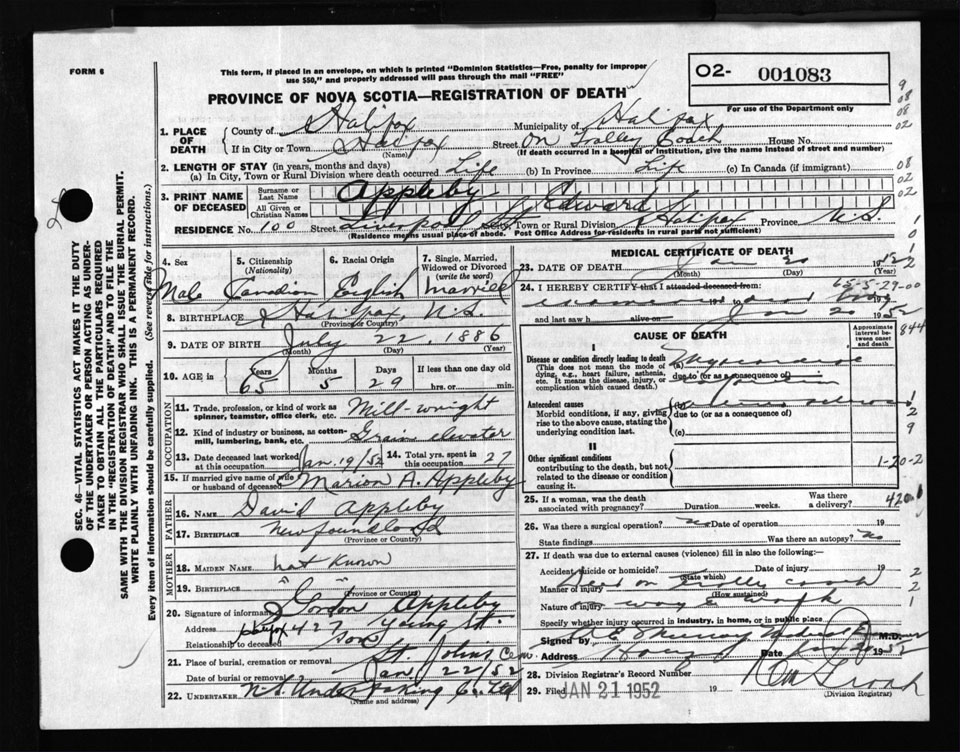 FORM 6
This form, if placed in an envelope, on which is printed "Dominion Statistics—Free, penalty for improper
use $50," and properly addressed will pass through the mail "FREE"
O2- 001083
PROVINCE OF NOVA SCOTIA—REGISTRATION OF DEATH
For use of the Department only
1. PLACE OF DEATH
County of Halifax Municipality of Halifax
If in City or Town Halifax Street On Trolley Coach House No.
(Name) (If death occurred in a hospital or institution, give the name instead of street and number)
2. LENGTH OF STAY (in years, months and days)
(a) In City, Town or Rural Division where death occurred Life (b) In Province Life (c) In Canada (if immigrant)
3. PRINT NAME OF DECEASED
Surname or Last Name Appleby
All Given or Christian Names Edward
RESIDENCE No. 100 Street Liverpool St City, Town or Rural Division Halifax Province N.S.
(Residence means usual place of abode. Post Office Address for residents in rural parts not sufficient)
4. Sex
Male
5. Citizenship
(Nationality)
Canadian
6. Racial Origin
English
7. Single, Married, Widowed or Divorced
(write the word)
Married
8. BIRTHPLACE Halifax, N.S.
(Province or Country)
9. DATE OF BIRTH July 22, 1886
(Month) (Day) (Year)
10. AGE in
Years Months Days If less than one day
65 5 29 hrs. or min.
OCCUPATION
11. Trade, profession, or kind of work as
spinner, teamster, office clerk, etc. Mill-wright
12. Kind of industry or business, as cotton-
mill, lumbering, bank, etc. Grain elevator
13. Date deceased last worked
at this occupation Jan. 19/52
14. Total yrs. spent in
this occupation 27
15. If married give name of wife
or husband of deceased Marion A. Appleby
FATHER
16. NAME David Appleby
17. BIRTHPLACE Newfoundland
(Province or Country)
MOTHER
18. MAIDEN NAME not known
19. BIRTHPLACE " "
(Province or Country)
20. Signature of informant Gordon Appleby
Address 427 Young St.
Relationship to deceased son
21. Place of burial, cremation or removal St. Johns Cem.
Date of burial or removal Jan 22/52
22. UNDERTAKER N.S. Undertaking Co. Ltd
(Name and address)
SEC. 46—VITAL STATISTICS ACT MAKES IT THE DUTY
OF THE UNDERTAKER OR PERSON ACTING AS UNDER-
TAKER TO OBTAIN ALL THE PARTICULARS REQUIRED
IN THE "REGISTRATION OF DEATH" AND TO FILE THE
SAME WITH THE DIVISION REGISTRAR WHO SHALL ISSUE THE BURIAL PERMIT.
WRITE PLAINLY WITH UNFADING INK. THIS IS A PERMANENT RECORD.
Every item of information should be carefully supplied. (See reverse side for instructions.)
MEDICAL CERTIFICATE OF DEATH
23. DATE OF DEATH Jan 20 1952
(Month) (Day) (Year)
24. I HEREBY CERTIFY that I attended deceased from:
65-5-29-00
and last saw h alive on Jan 20 1952
CAUSE OF DEATH
Approximate interval between onset and death
844
I
Disease or condition directly leading to death
(This does not mean the mode of
dying, e.g., heart failure, asthenia,
etc. It means the disease, injury, or
complication which caused death.)
(a)
due to (or as a consequence of)
Antecedent causes
Morbid conditions, if any, giving
rise to the above cause, stating the
underlying condition last.
(b)
due to (or as a consequence of)
(c)
II
Other significant conditions
contributing to the death, but not
related to the disease or condition
causing it.
1-20-2
25. If a woman, was the death
associated with pregnancy? Duration weeks. Was there a delivery?
26. Was there a surgical operation? no Date of operation 19
State findings Was there an autopsy? no
27. If death was due to external causes (violence) fill in also the following:—
Accident, suicide or homicide? Date of injury 19
(State which)
Manner of injury Died on trolley coach
(How sustained)
Nature of injury way to work
Specify whether injury occurred in industry, in home, or in public place
Signed by M.D.
Address Date 1952
28. Division Registrar's Record Number
29. Filed JAN 21 1952 19
(Division Registrar)